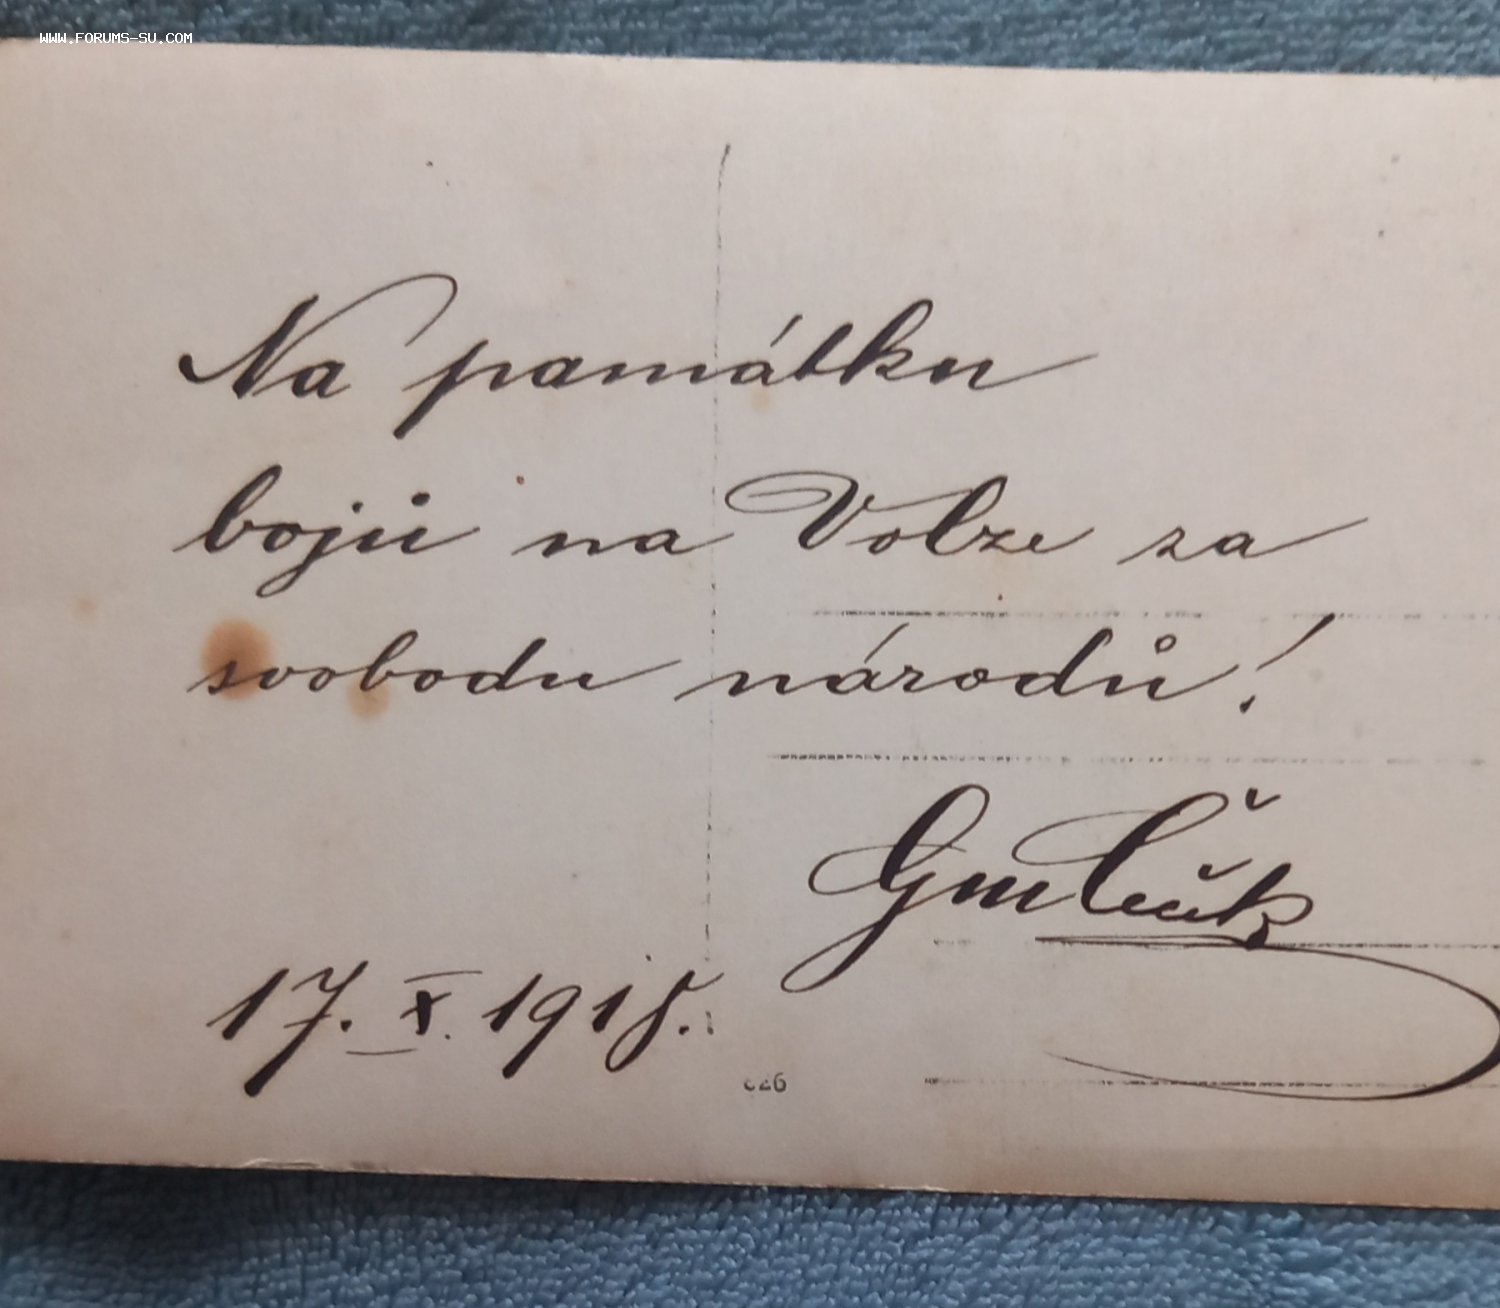 www.forums-su.com
Na památku
bojů na Volze za
svobodu národů!
17. X. 1918.